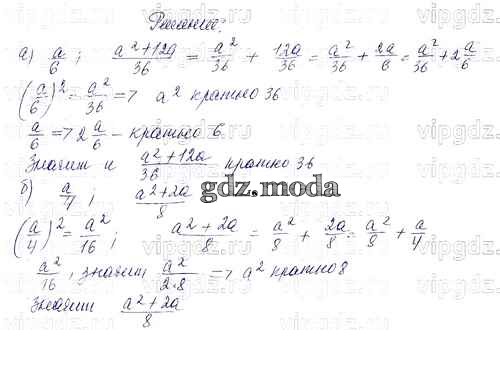 Решение:
а) a/6 ; (a²+12a)/36 = a²/36 + 12a/36 = a²/36 + 2a/6 = a²/36 + 2 a/6
(a/6)² = a²/36 => a² кратно 36
a/6 => 2 a/6 – кратно 6
Значит и (a²+12a)/36 кратно 36
б) a/4 ; (a²+2a)/8
gdz.moda
(a/4)² = a²/16 ; (a²+2a)/8 = a²/8 + 2a/8 = a²/8 + a/4
a²/16 , значит a²/(2·8) => a² кратно 8
Значит (a²+2a)/8
vipgdz